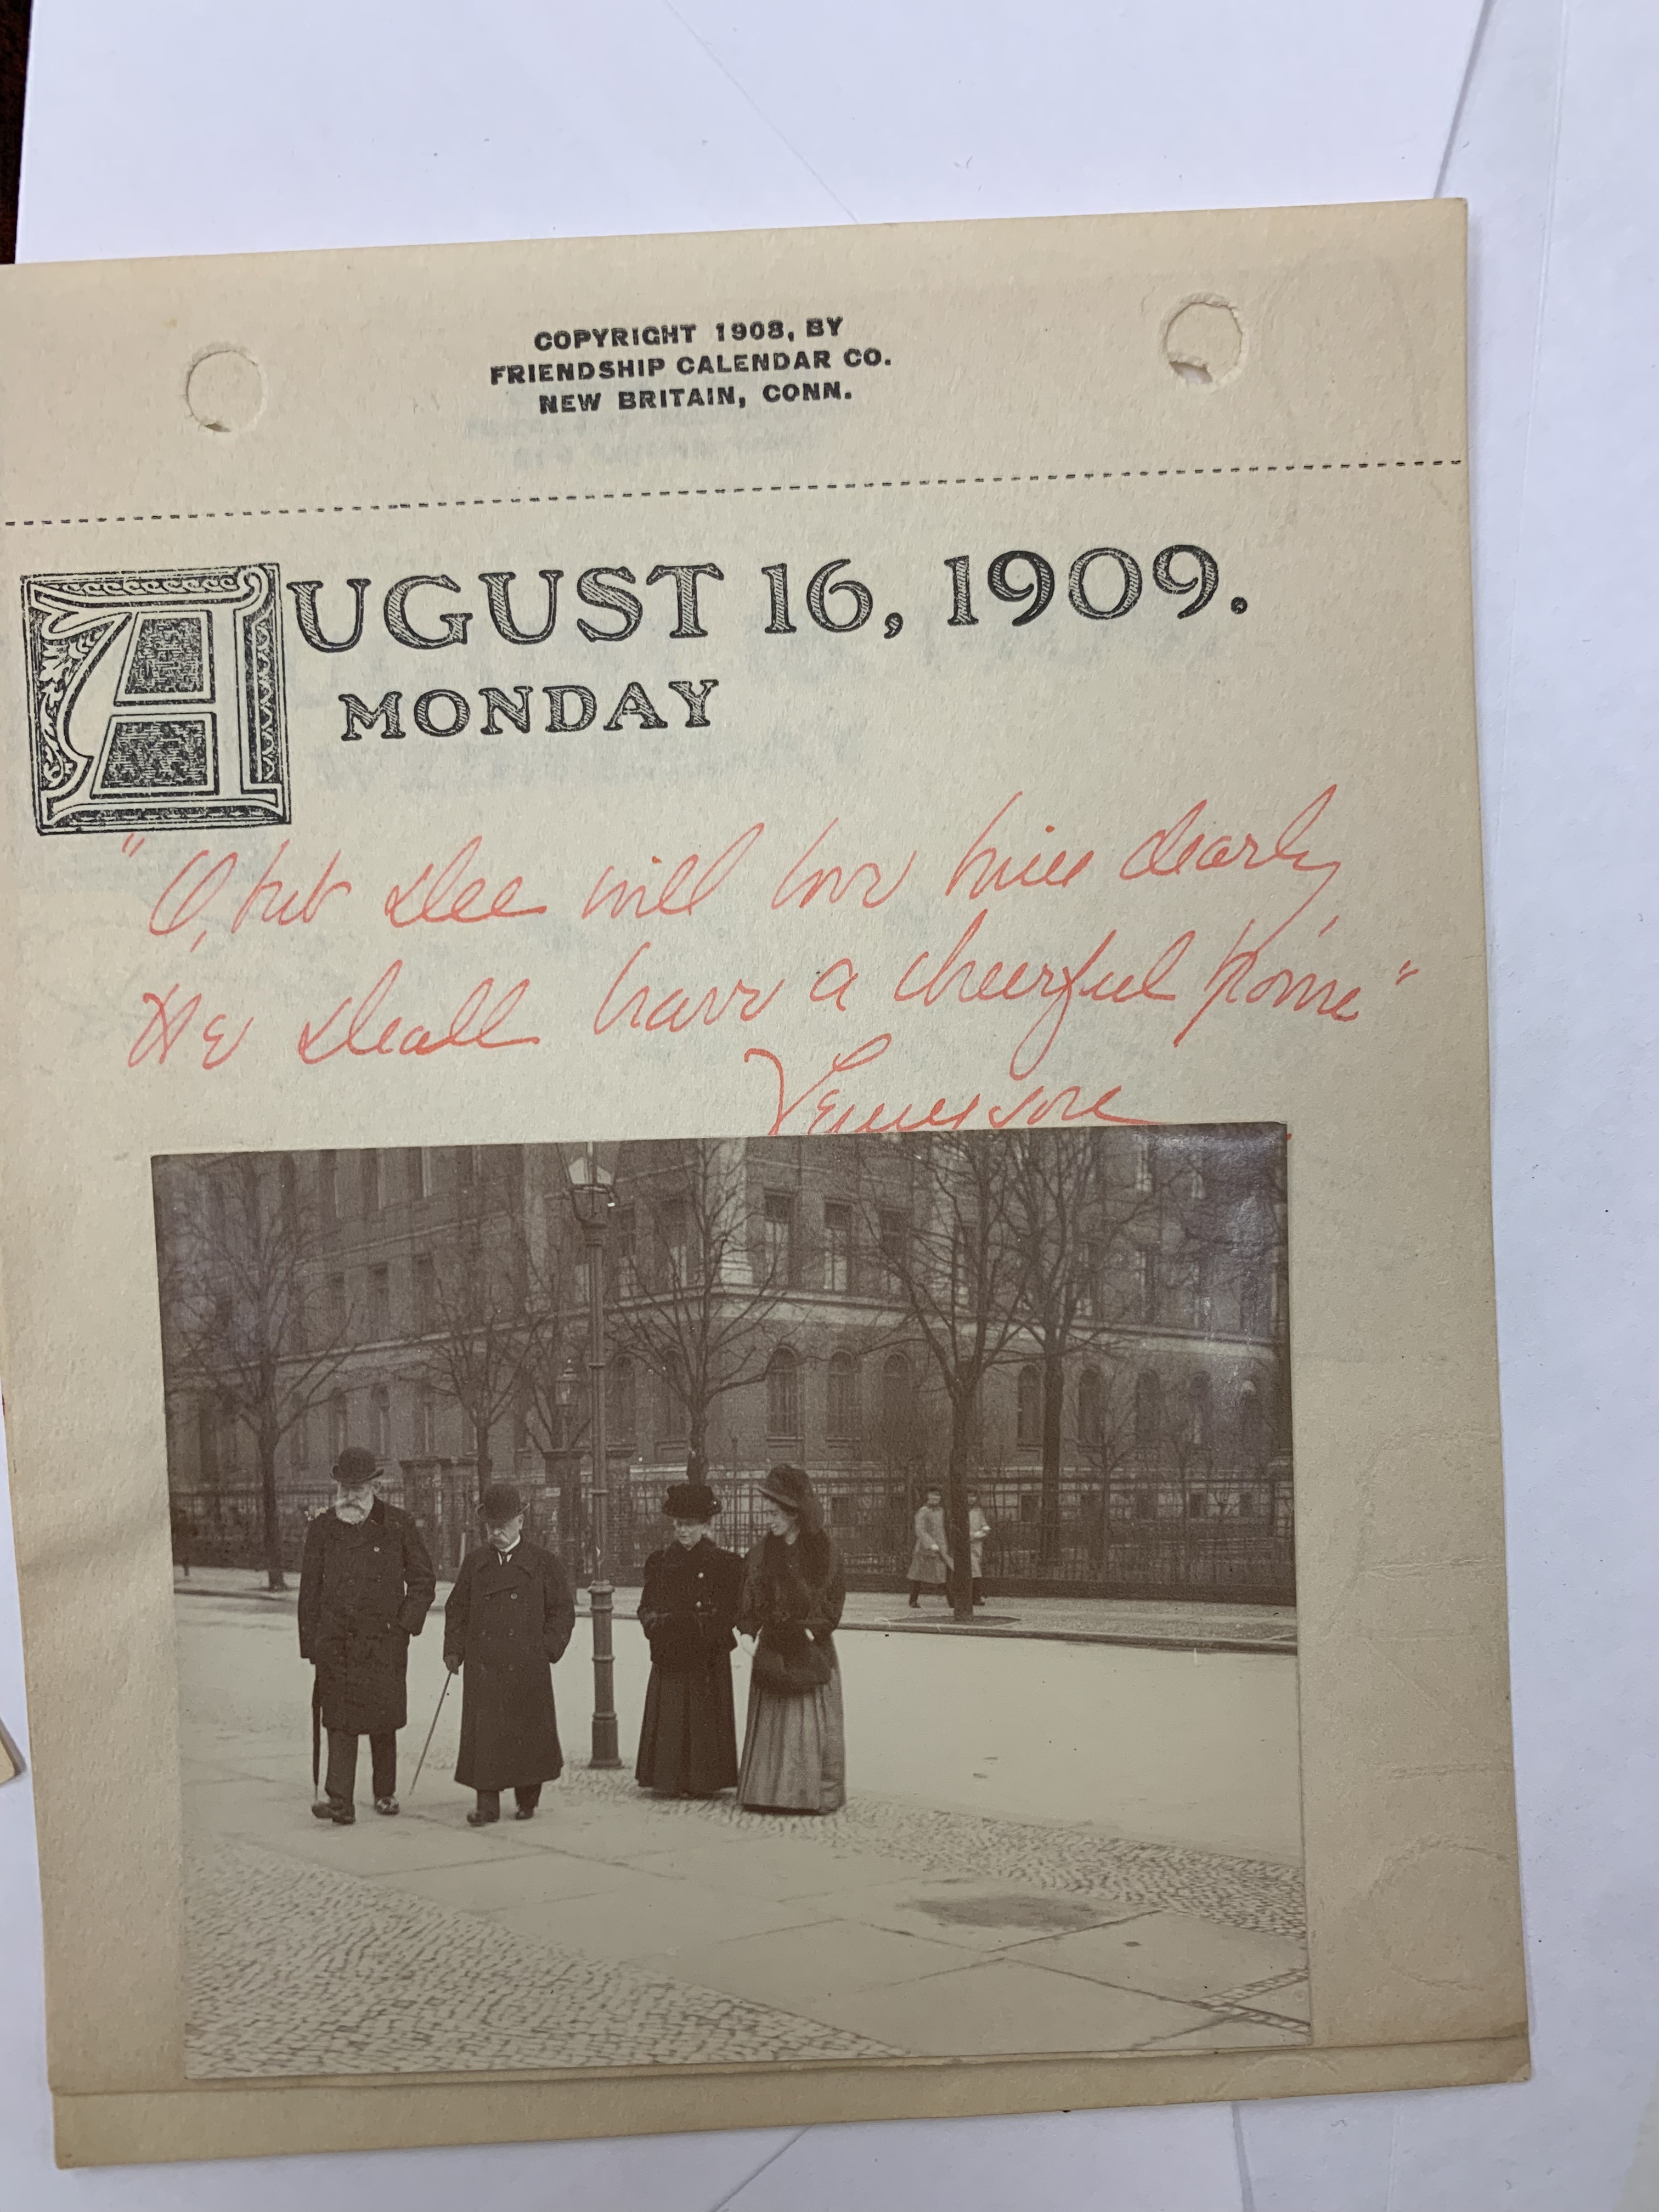 COPYRIGHT 1908, BY
FRIENDSHIP CALENDAR CO.
NEW BRITAIN, CONN.
AUGUST 16, 1909.
MONDAY
"O, but she will love him dearly,
He shall have a cheerful home"
Tennyson